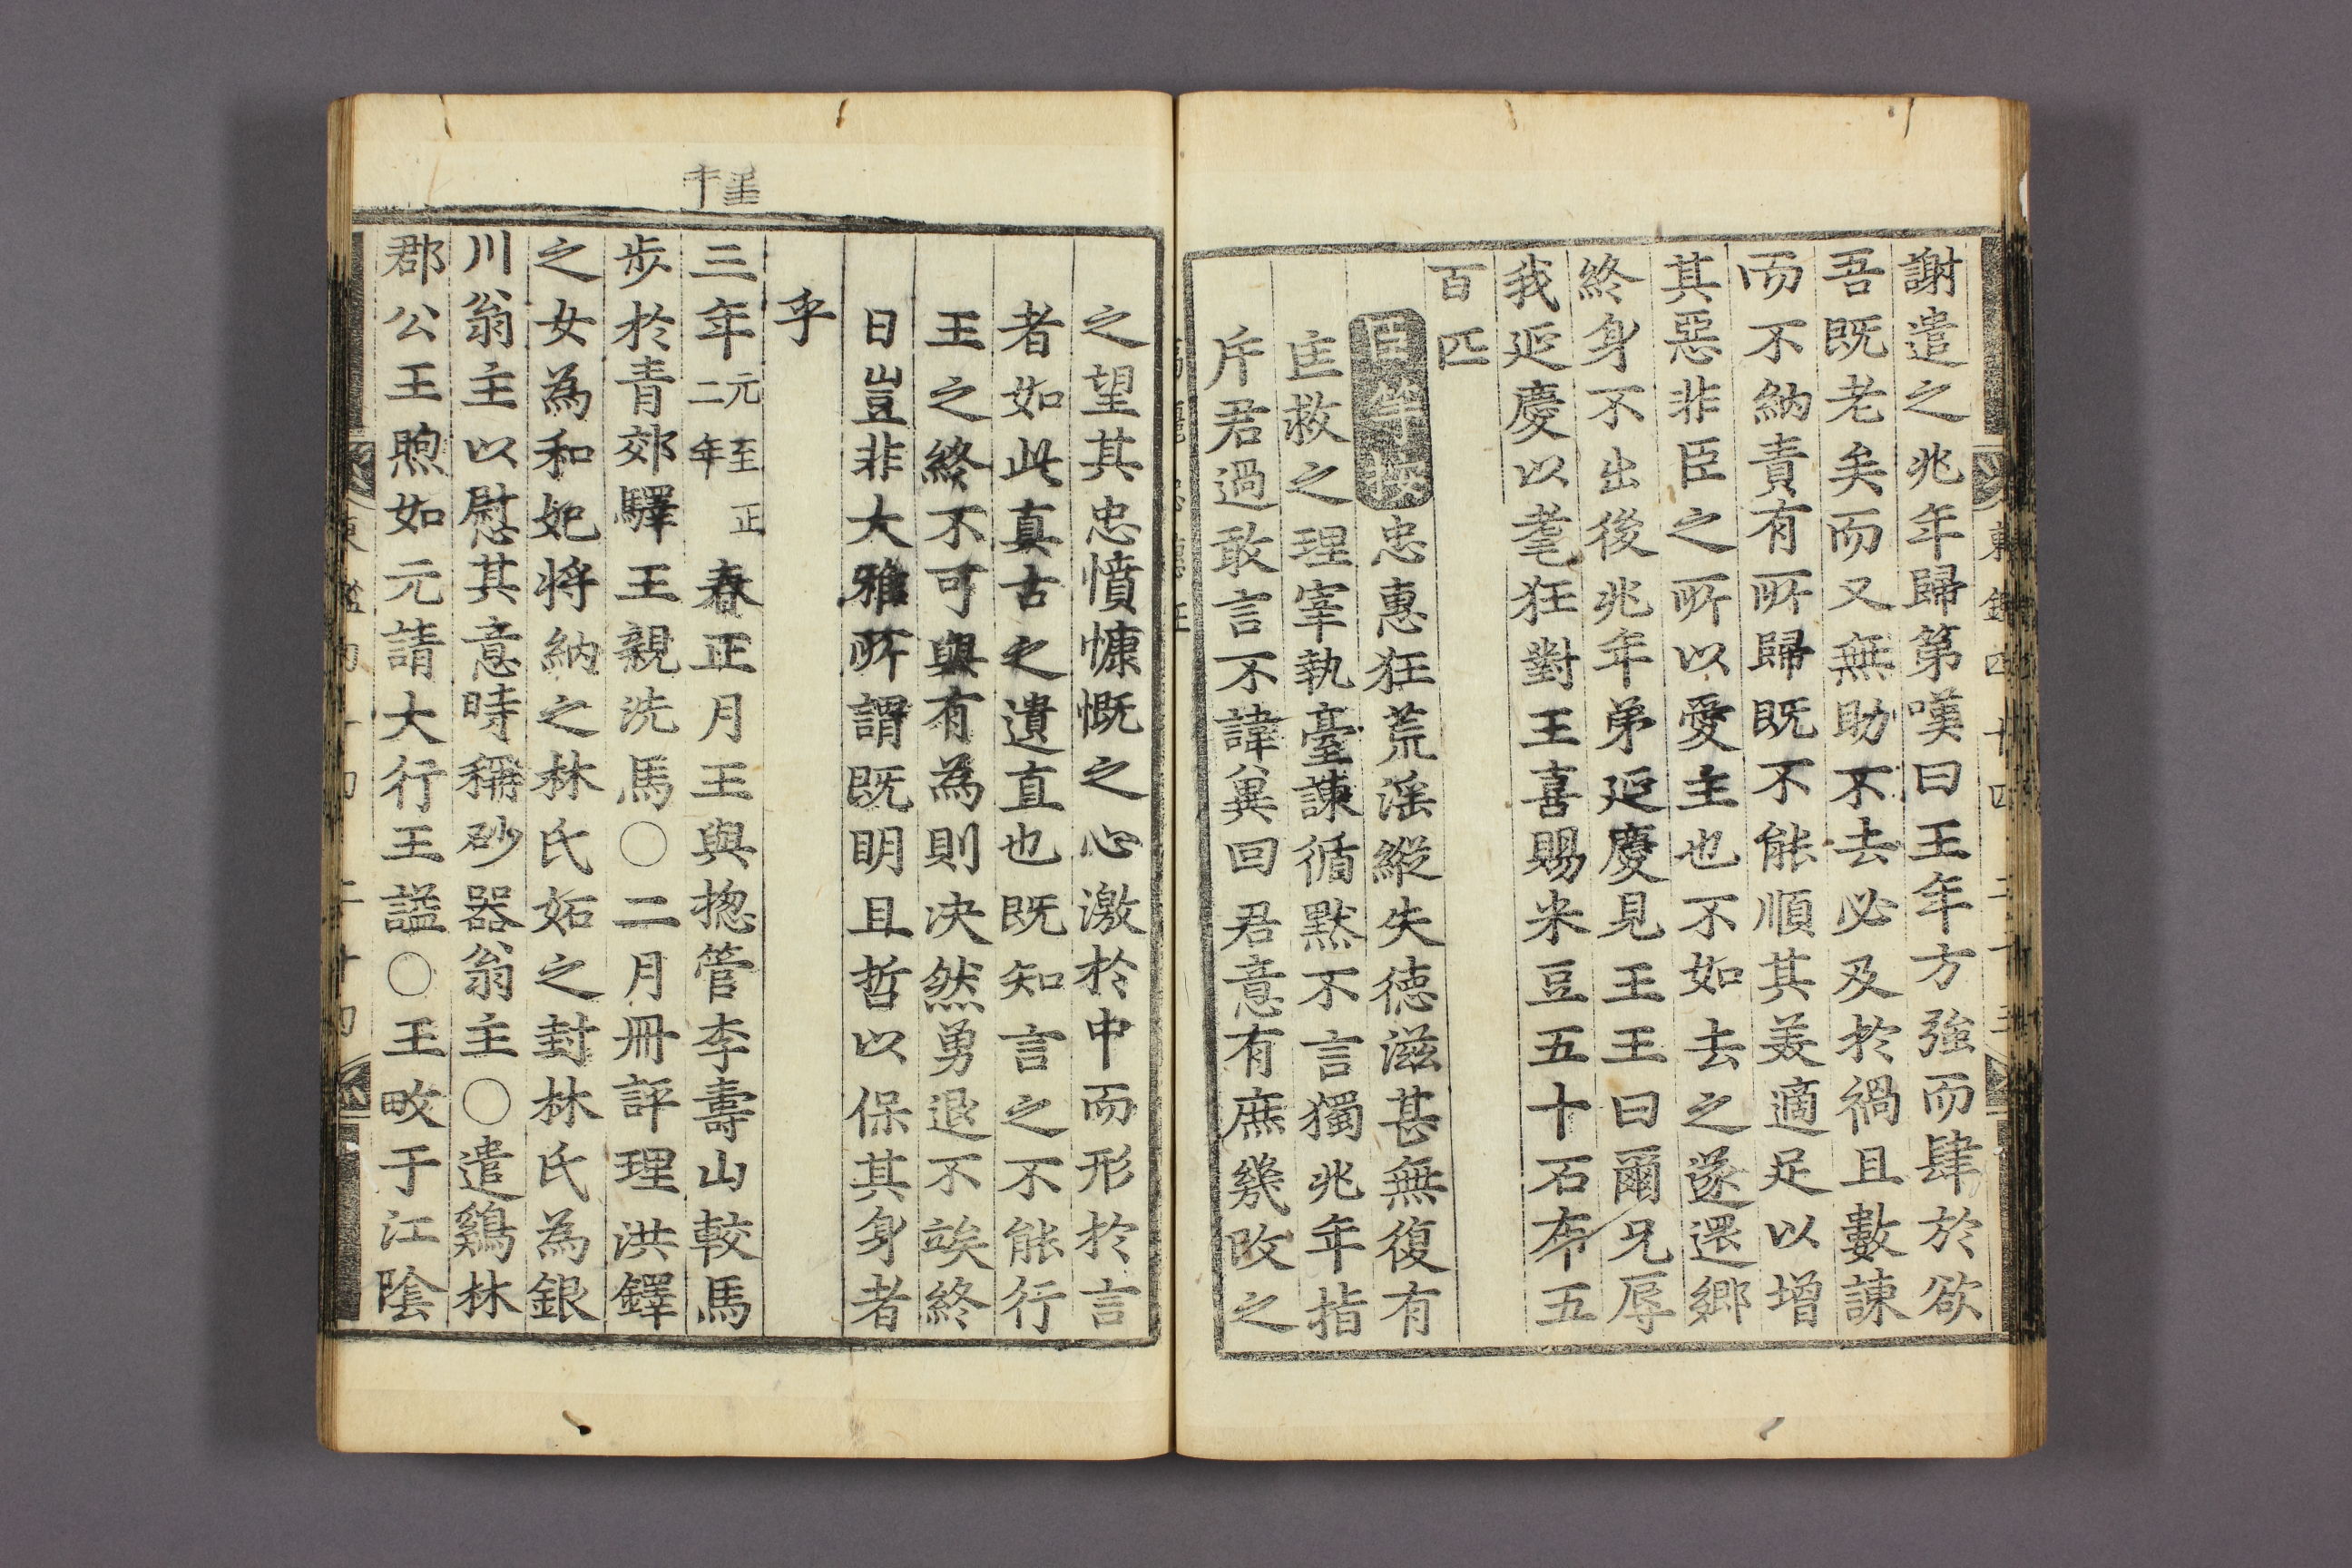 謝遣之兆年歸第嘆曰王年方強而肆於欲
吾既老矣而又無助不去必及於禍且數諫
而不納責有所歸既不能順其美適足以增
其惡非臣之所以愛主也不如去之遂還鄉
終身不出後兆年弟延慶見王王曰爾兄辱
我延慶以耄狂對王喜賜米豆五十石布五
百匹
臣等按忠惠狂荒淫縱失德滋甚無復有
匡救之理宰執臺諫循默不言獨兆年指
斥君過敢言不諱冀回君意有庶幾改之
之望其忠憤慷慨之心激於中而形於言
者如此真古之遺直也既知言之不能行
王之終不可與有為則決然勇退不俟終
日豈非大雅所謂既明且哲以保其身者
乎
三年元至正二年春正月王與摠管李壽山較馬
步於青郊驛王親洗馬○二月冊評理洪鐸
之女為和妃將納之林氏妬之封林氏為銀
川翁主以慰其意時稱砂器翁主○遣鷄林
郡公王煦如元請大行王謚○王畋于江陰